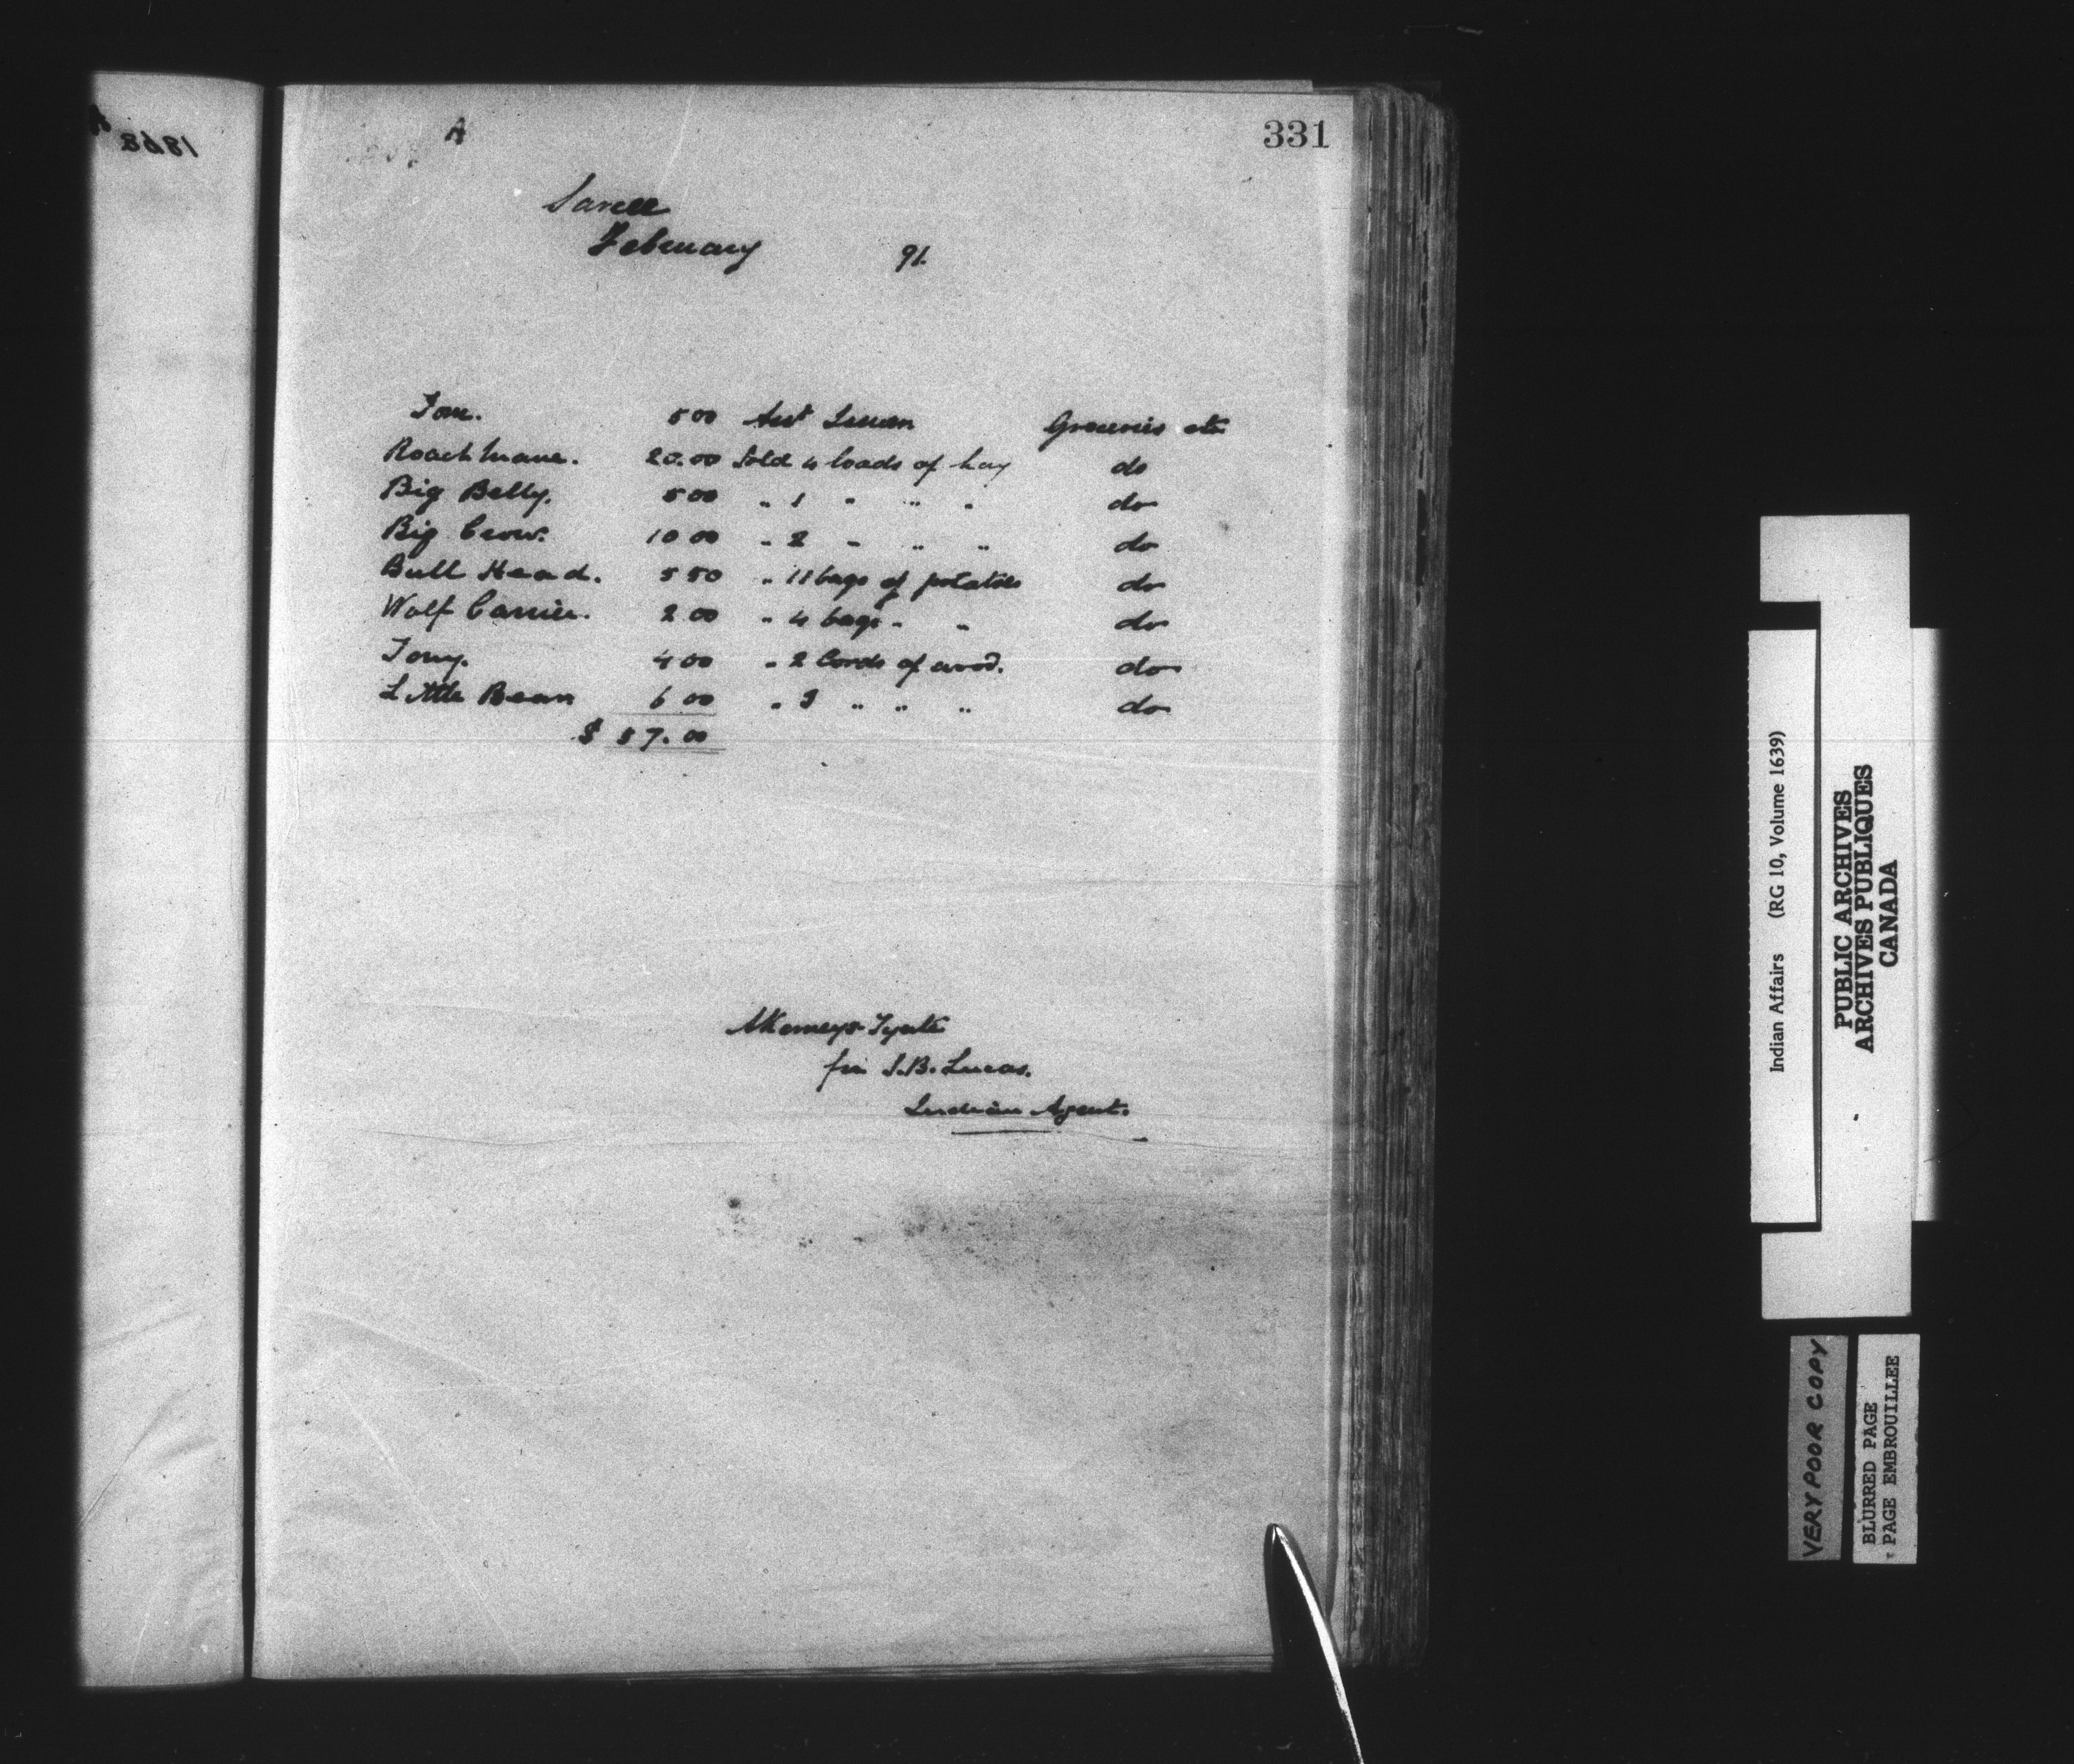 A
331
Sarcee
February 91.
Tom. 5 00 Asst Issuer Groceries etc
Roach Mane. 20.00 Sold 4 loads of hay do
Big Belly. 5 00 " 1 " " " do
Big Crow. 10 00 " 2 " " " do
Bull Head. 5 50 " 11 bags of potatoes do
Wolf Carrier. 2 00 " 4 bags " " do
Tony. 4 00 " 2 Cords of wood. do
Little Bear 6 00 " 3 " " " do
$ 57.00
for S.B. Lucas.
Indian Agent.
Indian Affairs (RG 10, Volume 1639)
PUBLIC ARCHIVES
ARCHIVES PUBLIQUES
CANADA
VERY POOR COPY
BLURRED PAGE
PAGE EMBROUILLEE